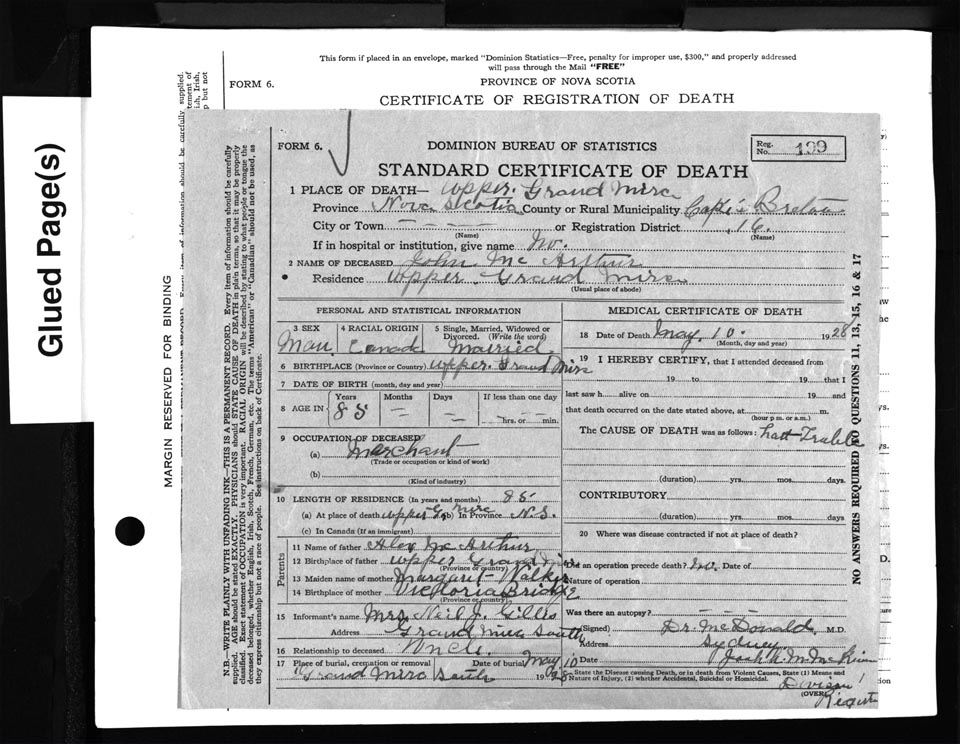 This form if placed in an envelope, marked "Dominion Statistics—Free, penalty for improper use, $300," and properly addressed
will pass through the Mail "FREE"
FORM 6.
PROVINCE OF NOVA SCOTIA
CERTIFICATE OF REGISTRATION OF DEATH
Glued Page(s)
MARGIN RESERVED FOR BINDING
N.B.—WRITE PLAINLY WITH UNFADING INK—THIS IS A PERMANENT RECORD. Every item of information should be carefully
supplied. AGE should be stated EXACTLY. PHYSICIANS should STATE CAUSE OF DEATH in plain terms, so that it may be properly
classified. Exact statement of OCCUPATION is very important. RACIAL ORIGIN will be described by stating to what people or tongue the
deceased belonged, whether English, Irish, Scotch, French, German, etc. The terms "American" or "Canadian" should not be used, as
they express citizenship but not a race of people. See instructions on back of Certificate.
FORM 6.
DOMINION BUREAU OF STATISTICS
Reg. No. 199
STANDARD CERTIFICATE OF DEATH
1 PLACE OF DEATH— Upper Grand Mira
Province Nova Scotia County or Rural Municipality Cape Breton
City or Town — — — — or Registration District 16.
(Name) (Name)
If in hospital or institution, give name No.
2 NAME OF DECEASED John Mc Arthur
Residence Upper Grand Mira
(Usual place of abode)
PERSONAL AND STATISTICAL INFORMATION
3 SEX Man
4 RACIAL ORIGIN Canada
5 Single, Married, Widowed or
Divorced. (Write the word)
Married
6 BIRTHPLACE (Province or Country) Upper Grand Mira
7 DATE OF BIRTH (month, day and year)
8 AGE IN Years 85 Months — Days — If less than one day
hrs. or min.
9 OCCUPATION OF DECEASED
(a) Merchant
(Trade or occupation or kind of work)
(b)
(Kind of industry)
10 LENGTH OF RESIDENCE (In years and months) 85
(a) At place of death Upper G. Mira (b) In Province N.S.
(c) In Canada (If an immigrant)
Parents
11 Name of father Alex Mc Arthur
12 Birthplace of father Upper Grand Mira
(Province or country)
13 Maiden name of mother Margaret Walker
14 Birthplace of mother Victoria Bridge
(Province or country)
15 Informant's name Mrs Neil J. Gillis
Address Grand Mira South
16 Relationship to deceased Uncle.
17 Place of burial, cremation or removal Date of burial May 10
Grand Mira South 1928
MEDICAL CERTIFICATE OF DEATH
18 Date of Death May 10. 1928
(Month, day and year)
19 I HEREBY CERTIFY, that I attended deceased from
19 to 19 that I
last saw h alive on 19 and
that death occurred on the date stated above, at m.
(hour p m. or a.m.)
The CAUSE OF DEATH was as follows:
(duration) yrs. mos. days.
CONTRIBUTORY
(duration) yrs. mos. days.
20 Where was disease contracted if not at place of death?
Did an operation precede death? No. Date of
Nature of operation
Was there an autopsy? — — —
(Signed) Dr. McDonald, M.D.
Address Sydney
Date
State the Disease causing Death, or in death from Violent Causes, State (1) Means and
Nature of Injury, (2) whether Accidental, Suicidal or Homicidal.
(OVER)
Division
NO ANSWERS REQUIRED TO QUESTIONS 11, 13, 15, 16 & 17